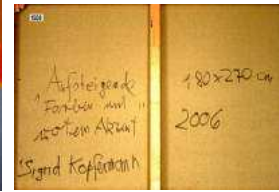 Aufsteigende
Farben mit
rotem Akzent
Sigrid Kopfermann
180x270 cm
2006